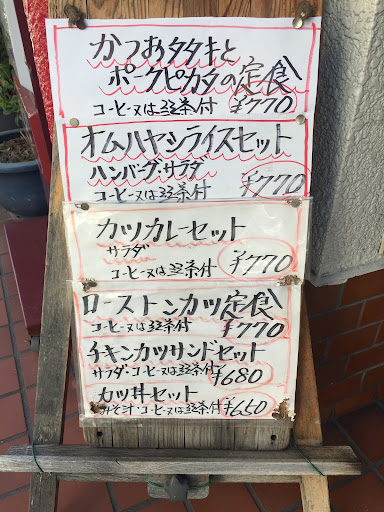 かつおタタキと
ポークピカタの定食
コーヒー又は紅茶付 ¥770
オムハヤシライスセット
ハンバーグ・サラダ
コーヒー又は紅茶付 ¥770
カツカレーセット
サラダ
コーヒー又は紅茶付 ¥770
ローストンカツ定食
コーヒー又は紅茶付 ¥770
チキンカツサンドセット
サラダ・コーヒー又は紅茶付 ¥680
カツ丼セット
みそ汁・コーヒー又は紅茶付 ¥650